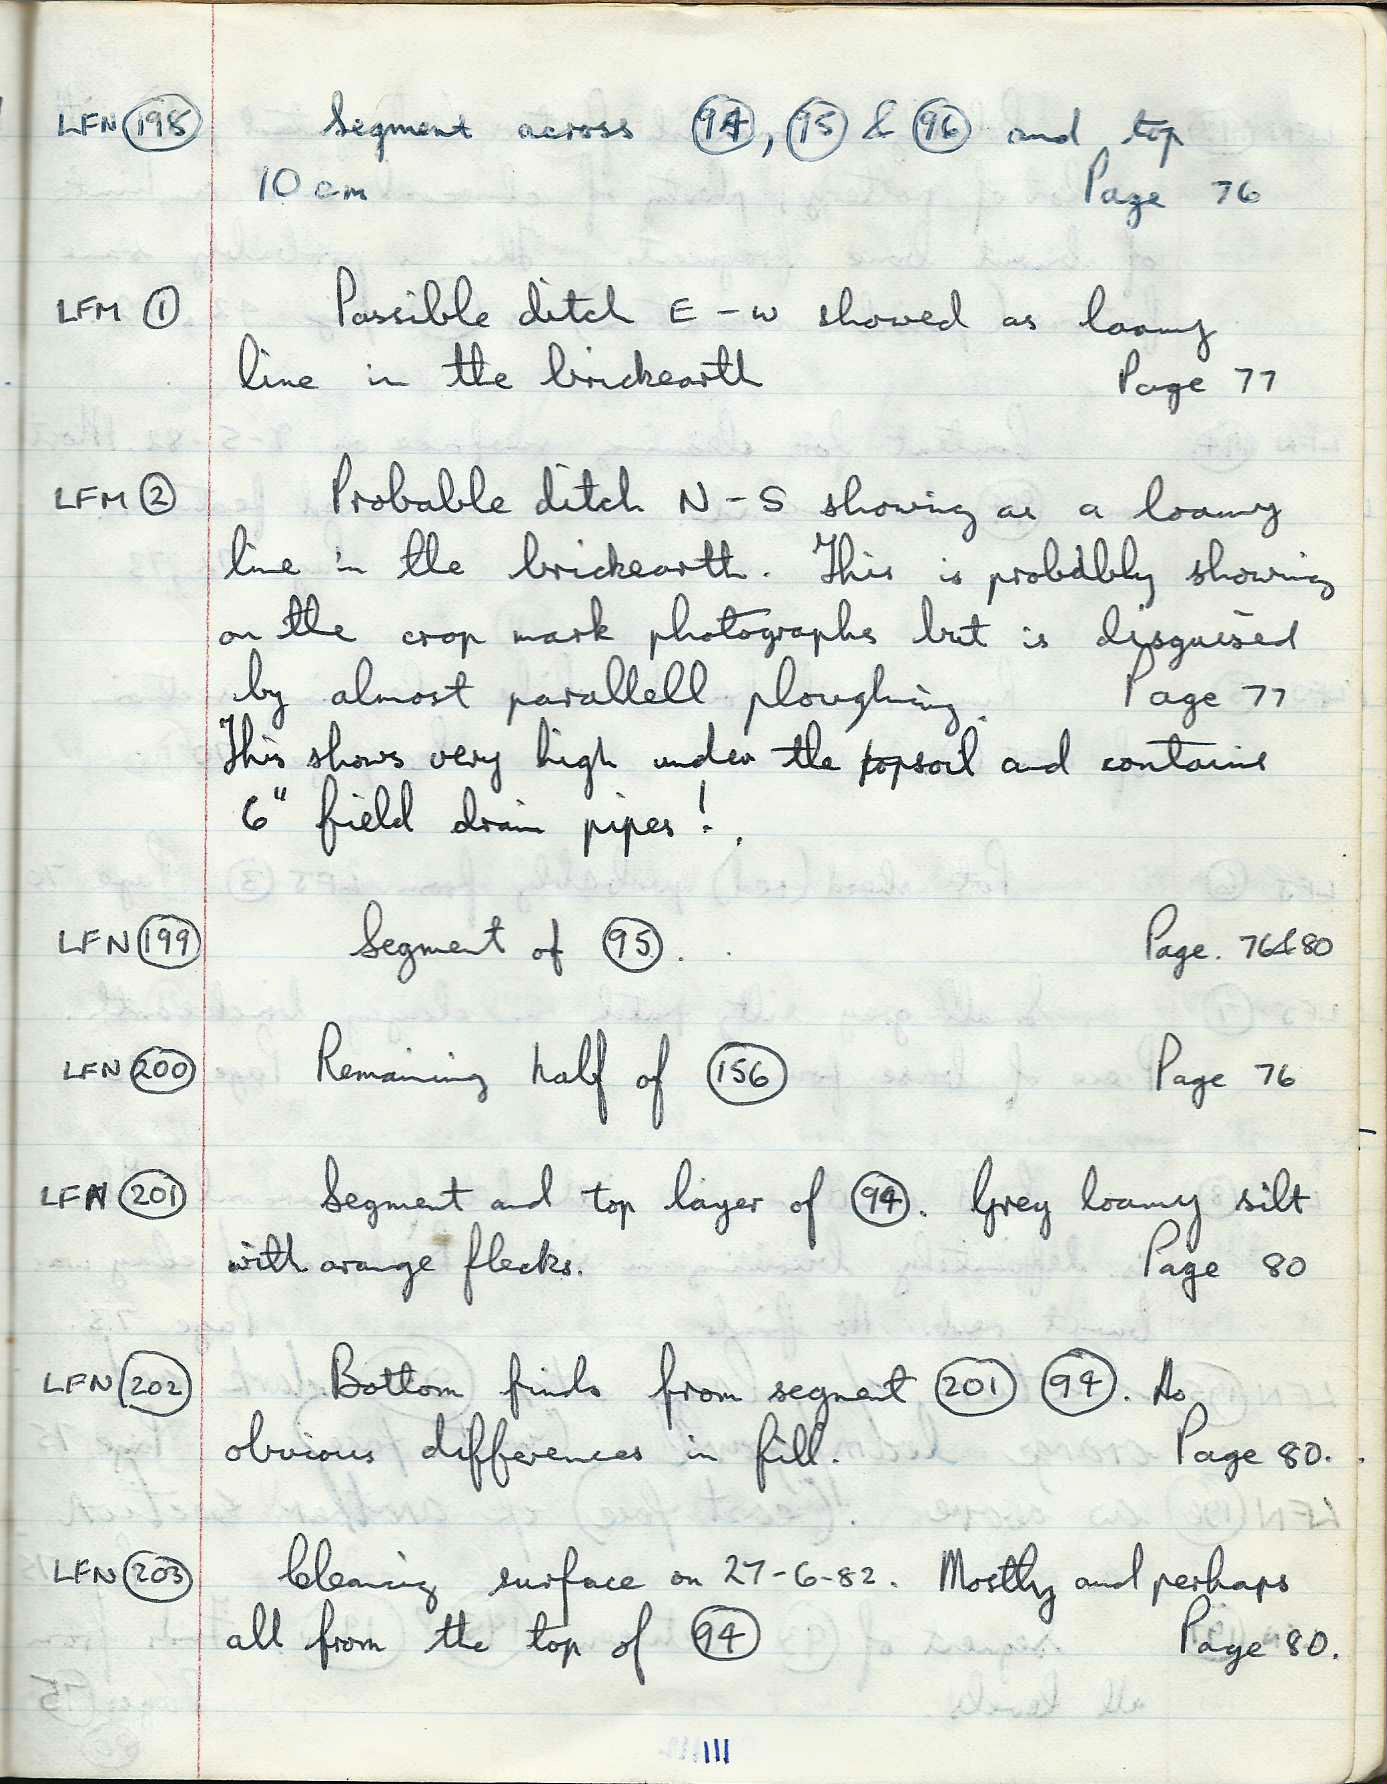 LFN (198) Segment across (94), (95) & (96) and top
10 cm Page 76
LFM (1) Possible ditch E-W showed as loamy
line in the brickearth Page 77
LFM (2) Probable ditch N-S showing as a loamy
line in the brickearth. This is probably showing
on the crop mark photographs but is disguised
by almost parallell ploughing. Page 77
This shows very high under the topsoil and contains
6" field drain pipes!.
LFN (199) Segment of (95). Page. 76&80
LFN (200) Remaining half of (156) Page 76
LFN (201) Segment and top layer of (94). Grey loamy silt
with orange flecks. Page 80
LFN (202) Bottom finds from segment (201) (94). No
obvious differences in fill. Page 80.
LFN (203) Cleaning surface on 27-6-82. Mostly and perhaps
all from the top of (94) Page 80.
111